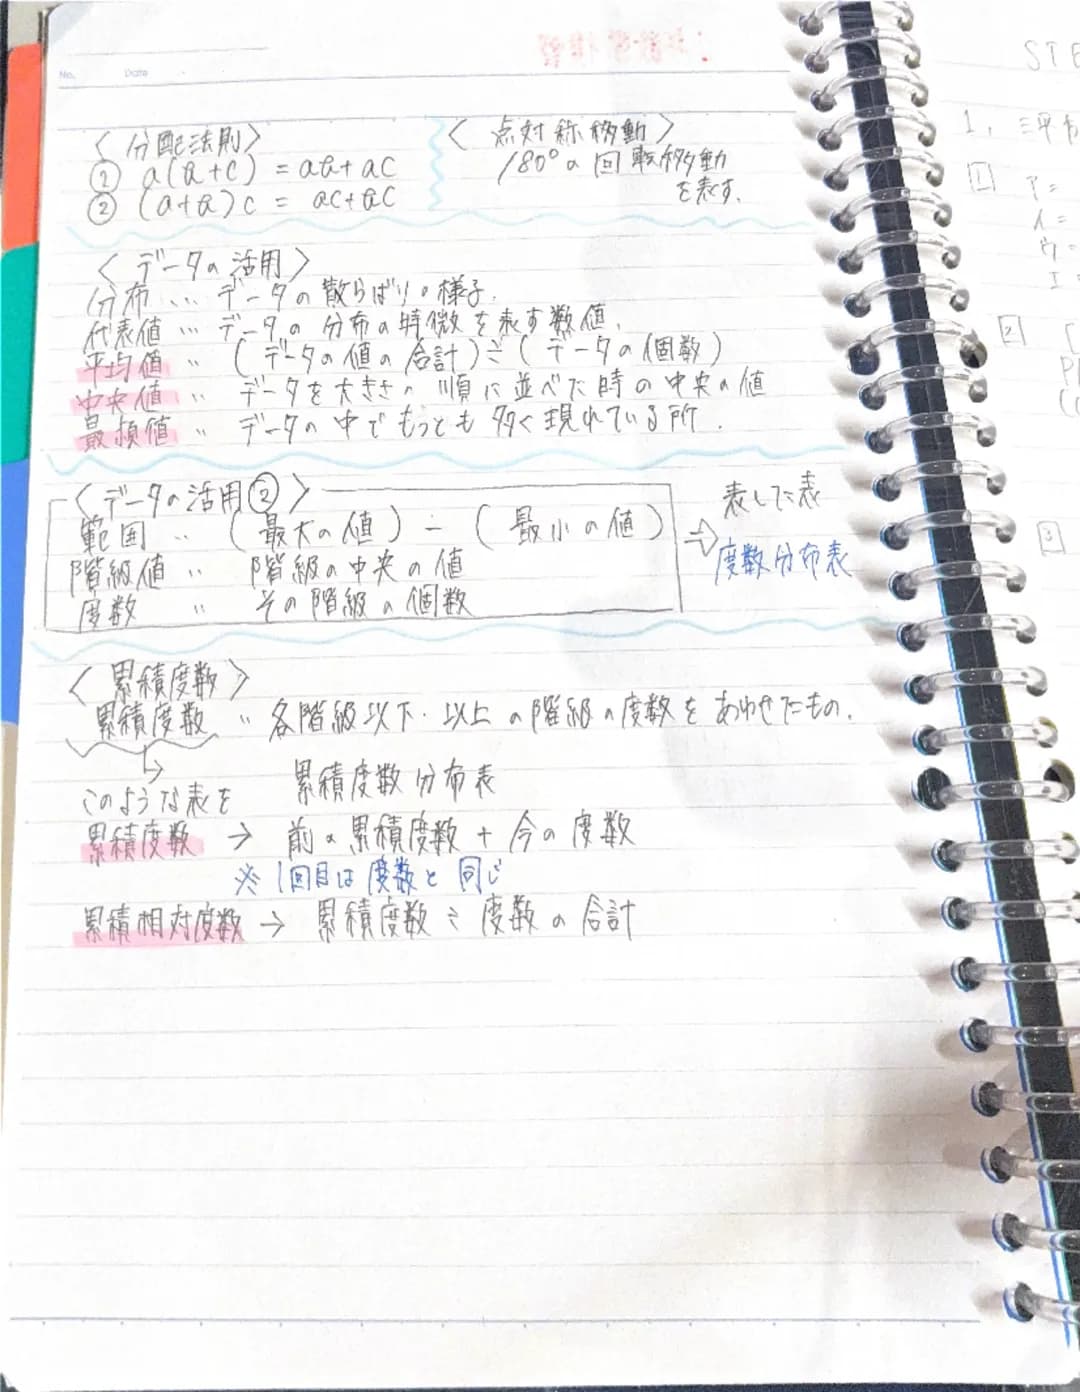 No.
Date
〈分配法則〉
② a(b+c) = ab+ac
② (a+b)c = ac+bc
〈点対称移動〉
180°の回転移動
を表す.
〈データの活用〉
分布 … データの散らばりの様子.
代表値 … データの分布の特徴を表す数値.
平均値 〃 (データの値の合計)÷(データの個数)
中央値 〃 データを大きさの順に並べた時の中央の値
最頻値 〃 データの中でもっとも多く現れている所.
〈データの活用②〉
範囲 〃 (最大の値) − (最小の値)
階級値 〃 階級の中央の値
度数 〃 その階級の個数
⇒ 表した表
度数分布表
〈累積度数〉
累積度数 〃 各階級以下・以上の階級の度数をあわせたもの.
このような表を 累積度数分布表
累積度数 → 前の累積度数 + 今の度数
※ 1回目は度数と同じ
累積相対度数 → 累積度数 ÷ 度数の合計
STE
1.
1
ア=
イ=
ウ=
エ=
2
3